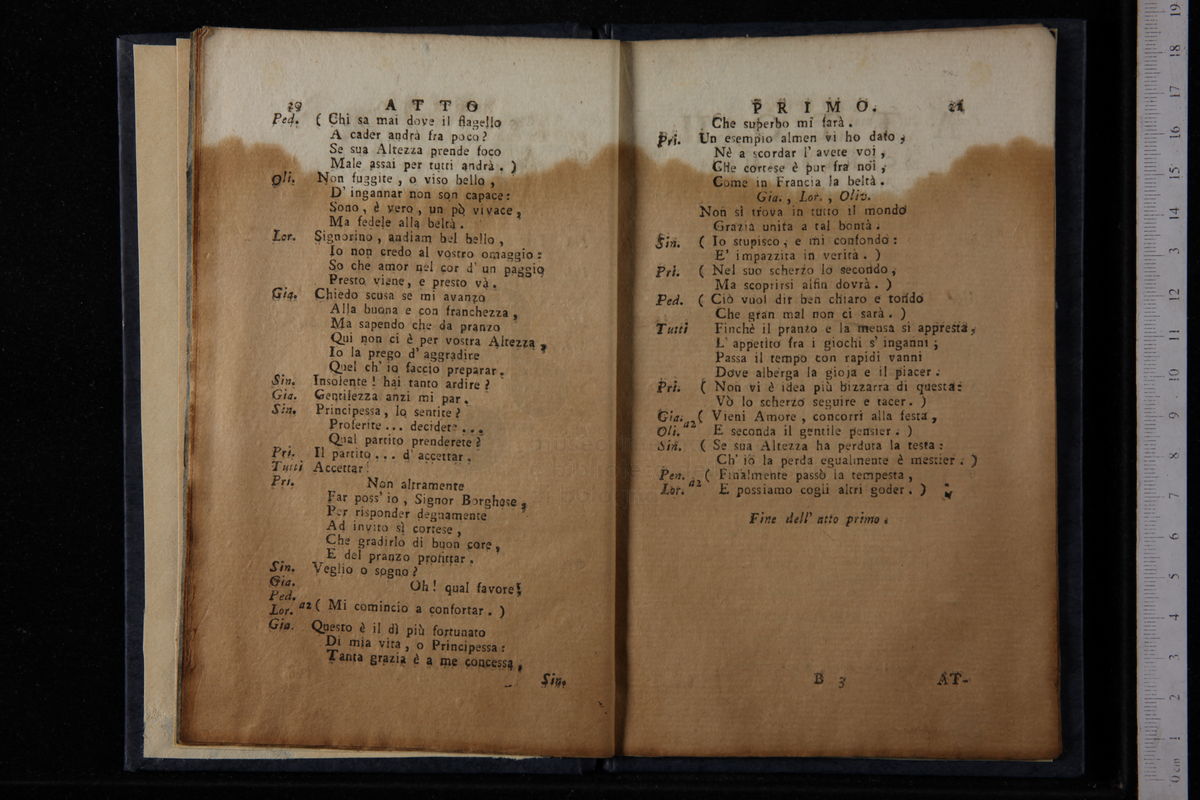 29 ATTO
Ped. ( Chi sa mai dove il flagello
A cader andrà fra poco?
Se sua Altezza prende foco
Male assai per tutti andrà . )
Oli. Non fuggite , o viso bello ,
D' ingannar non son capace :
Sono , è vero , un pò vivace ,
Ma fedele alla beltà .
Lor. Signorino , andiam bel bello ,
Io non credo al vostro omaggio :
So che amor nel cor d' un paggio
Presto viene , e presto và .
Gia. Chiedo scusa se mi avanzo
Alla buona e con franchezza ,
Ma sapendo che da pranzo
Qui non ci è per vostra Altezza ,
Io la prego d' aggradire
Quel ch' io faccio preparar .
Sin. Insolente ! hai tanto ardire ?
Gia. Gentilezza anzi mi par .
Sin. Principessa , lo sentite ?
Proferite ... decidete ...
Qual partito prenderete ?
Pri. Il partito ... d' accettar .
Tutti Accettar !
Pri. Non altramente
Far poss' io , Signor Borghese ,
Per risponder degnamente
Ad invito sì cortese ,
Che gradirlo di buon core ,
E del pranzo profittar .
Sin. Veglio o sogno ?
Gia. Oh ! qual favore !
Ped.
Lor. a2 ( Mi comincio a confortar . )
Gia. Questo è il dì più fortunato
Di mia vita , o Principessa :
Tanta grazia è a me concessa ,
Sin.
PRIMO. 21
Che superbo mi farà .
Pri. Un esempio almen vi ho dato ,
Nè a scordar l' avete voi ,
Che cortese è pur fra noi ,
Come in Francia la beltà .
Gia. , Lor. , Oliv.
Non si trova in tutto il mondo
Grazia unita a tal bontà .
Sin. ( Io stupisco , e mi confondo :
E' impazzita in verità . )
Pri. ( Nel suo scherzo lo secondo ,
Ma scoprirsi alfin dovrà . )
Ped. ( Ciò vuol dir ben chiaro e tondo
Che gran mal non ci sarà . )
Tutti Finchè il pranzo e la mensa si appresta ,
L' appetito fra i giochi s' inganni ;
Passa il tempo con rapidi vanni
Dove alberga la gioja e il piacer .
Pri. ( Non vi è idea più bizzarra di questa :
Vò lo scherzo seguire e tacer . )
Gia. a2 ( Vieni Amore , concorri alla festa ,
Oli. E seconda il gentile pensier . )
Sin. ( Se sua Altezza ha perduta la testa :
Ch' io la perda egualmente è mestier . )
Pen. a2 ( Finalmente passò la tempesta ,
Lor. E possiamo cogli altri goder . )
Fine dell' atto primo .
B 3 AT-